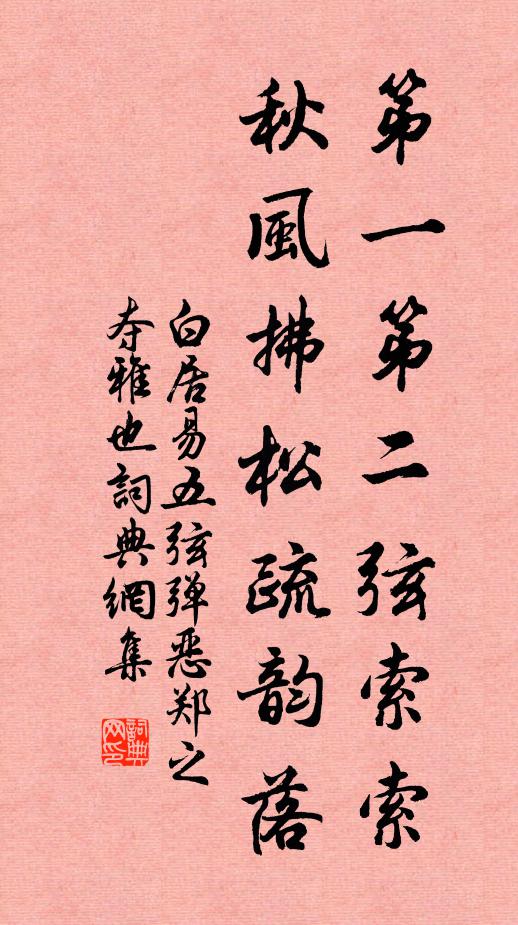 第一第二弦索索
秋風拂松疏韵落
白居易五弦弹恶郑之
夺雅也詞典網集
詞典
网印